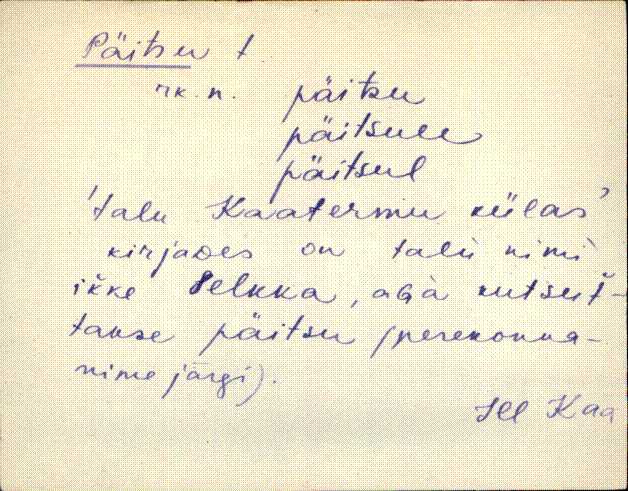 Päitsu t.
rk. n. päitsu
päitsule
päitsul
'talu Kaatermu külas'
kirjades on talu nimi
ikke Pelkka, aga kutsut-
takse päitsu (perekonna-
nime järgi).
Ill Kaa